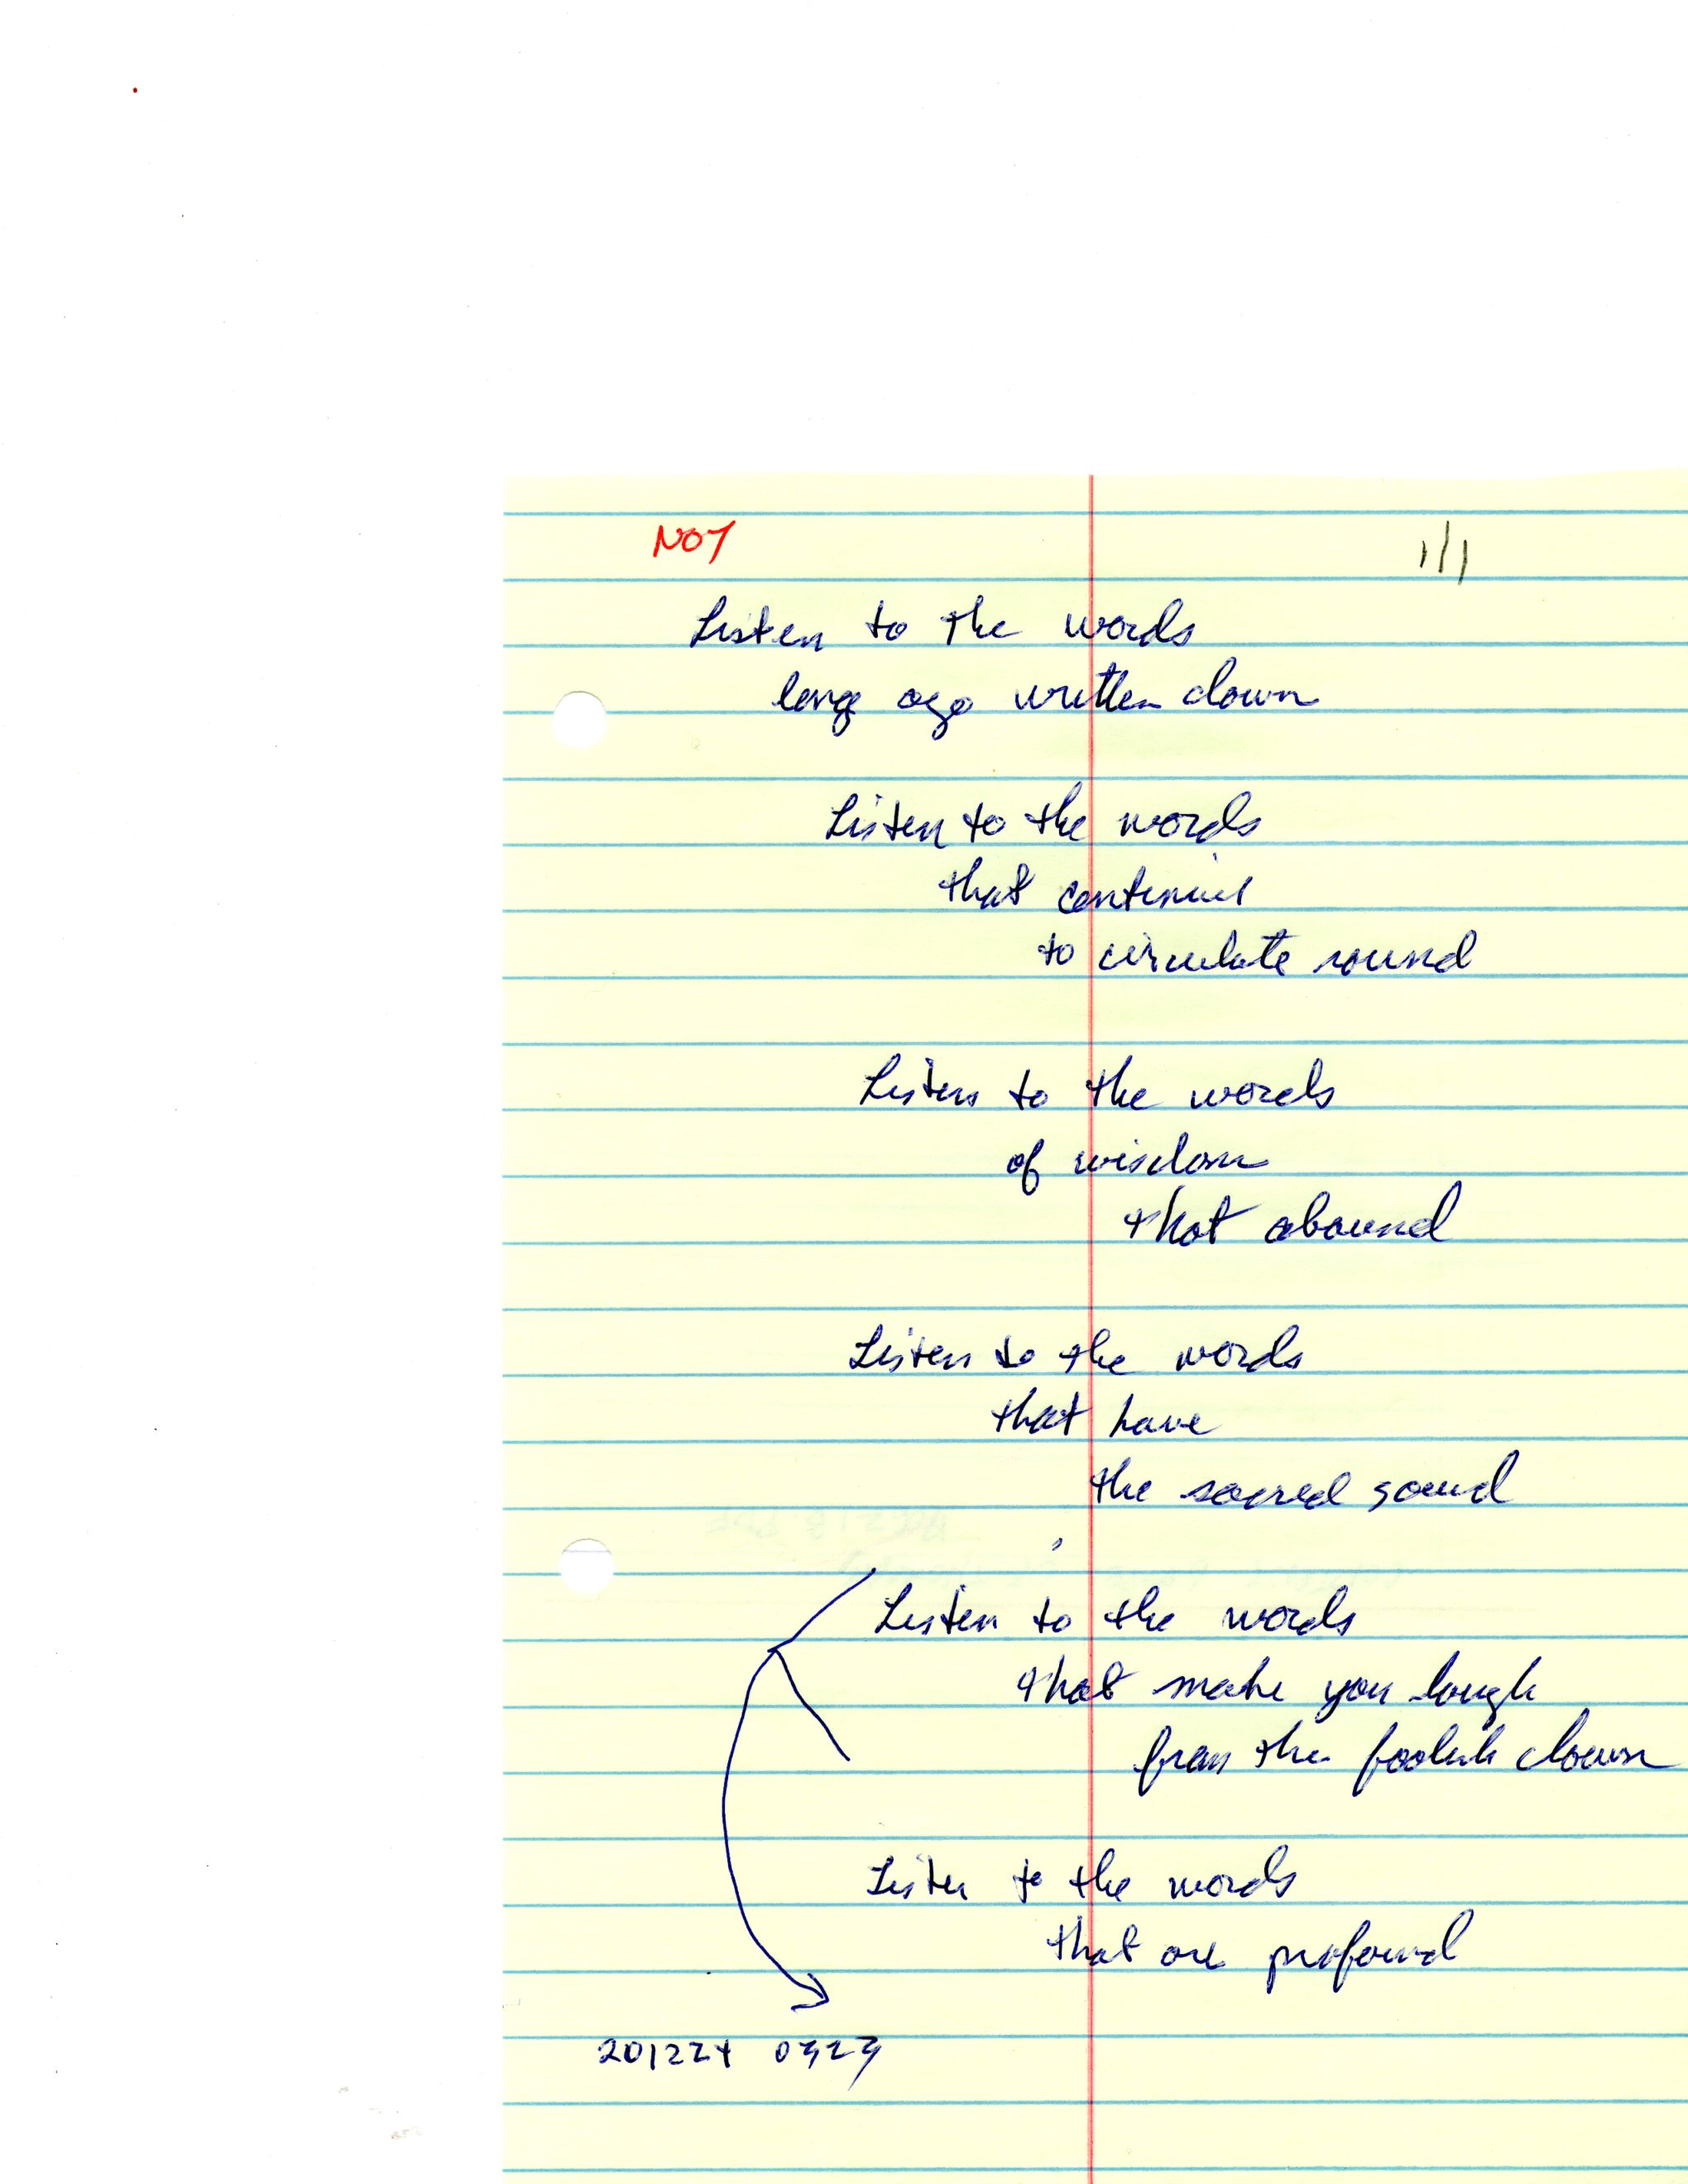 NOT
1/1
Listen to the words
long ago written down
Listen to the words
that continues
to circulate round
Listen to the words
of wisdom
that abound
Listen to the words
that have
the sacred sound
Listen to the words
that make you laugh
from the foolish clown
Listen to the words
that are profound
201224